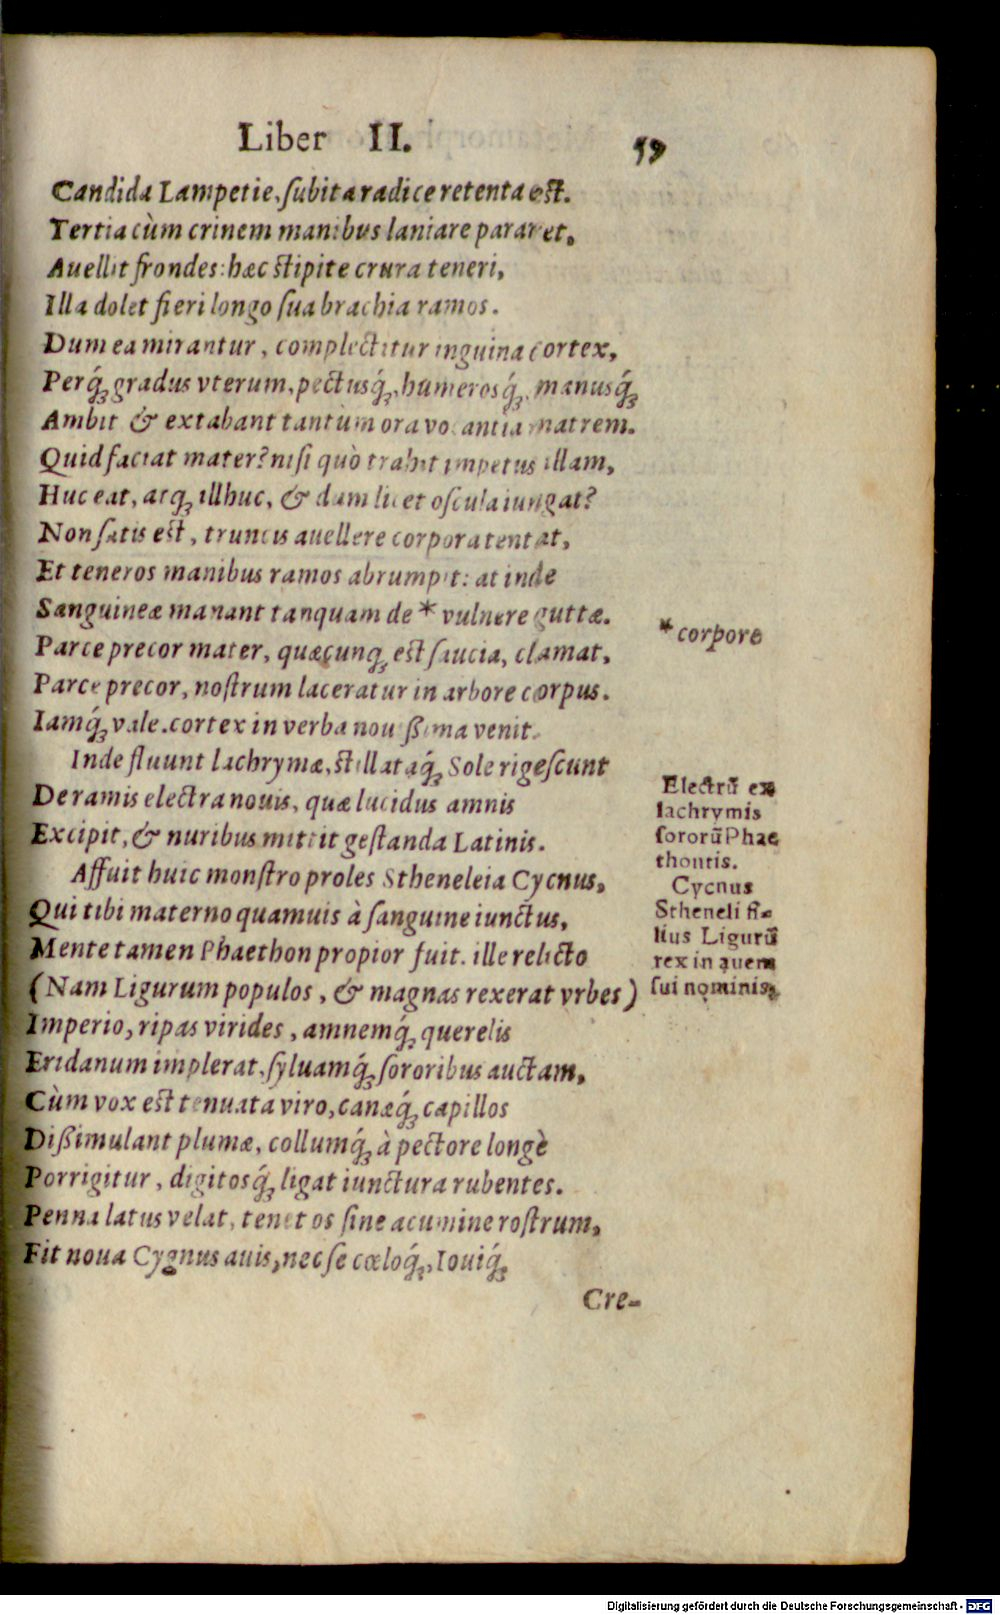 Liber II. 59
Candida Lampetie, ſubita radice retenta eſt.
Tertia cùm crinem manibus laniare pararet,
Auellit frondes: hæc ſtipite crura teneri,
Illa dolet fieri longo ſua brachia ramos.
Dum ea mirantur, complectitur inguina cortex,
Perq́; gradus vterum, pectusq́;, humerosq́;, manusq́;
Ambit & extabant tantùm ora vocantia matrem.
Quid faciat mater? niſi quò trahit impetus illam,
Huc eat, atq; illhuc, & dum licet oſcula iungat?
Non ſatis eſt, truncis auellere corpora tentat,
Et teneros manibus ramos abrumpit: at inde
Sanguineæ manant tanquam de * vulnere guttæ.
* corpore
Parce precor mater, quæcunq; eſt ſaucia, clamat,
Parce precor, noſtrum laceratur in arbore corpus.
Iamq́; vale. cortex in verba nouißima venit.
Inde fluunt lachrymæ, ſtillataq́; Sole rigeſcunt
De ramis electra nouis, quæ lucidus amnis
Excipit, & nuribus mittit geſtanda Latinis.
Affuit huic monſtro proles Stheneleia Cycnus,
Qui tibi materno quamuis à ſanguine iunctus,
Mente tamen Phaethon propior fuit. ille relicto
(Nam Ligurum populos, & magnas rexerat vrbes)
Imperio, ripas virides, amnemq́; querelis
Eridanum implerat, ſyluamq́; ſororibus auctam,
Cùm vox eſt tenuata viro, canæq́; capillos
Dißimulant plumæ, collumq́; à pectore longè
Porrigitur, digitosq́; ligat iunctura rubentes.
Penna latus velat, tenet os ſine acumine roſtrum,
Fit noua Cygnus auis, nec ſe cœloq́;, Iouiq́;
Cre-
Electrũ ex
lachrymis
ſororũ Phae
thontis.
Cycnus
Stheneli fi-
lius Ligurũ
rex in auem
ſui nominis,
Digitalisierung gefördert durch die Deutsche Forschungsgemeinschaft - DFG